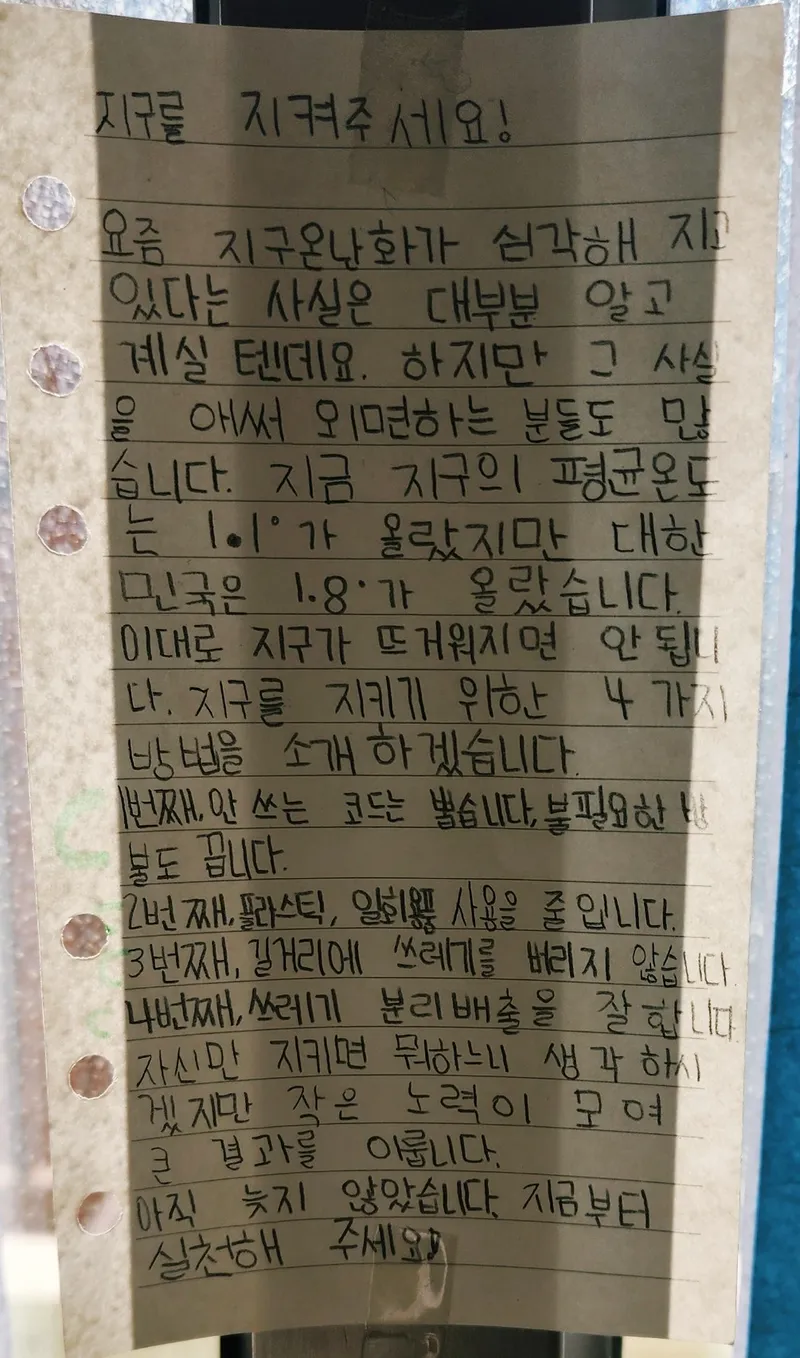 지구를 지켜주세요!
요즘 지구온난화가 심각해 지고
있다는 사실은 대부분 알고
계실 텐데요. 하지만 그 사실
을 애써 외면하는 분들도 많
습니다. 지금 지구의 평균온도
는 1.1°가 올랐지만 대한
민국은 1.8°가 올랐습니다.
이대로 지구가 뜨거워지면 안 됩니
다. 지구를 지키기 위한 4 가지
방법을 소개 하겠습니다.
1번째, 안 쓰는 코드는 뽑습니다, 불필요한
불도 끕니다.
2번째, 플라스틱, 일회용품 사용을 줄입니다.
3번째, 길거리에 쓰레기를 버리지 않습니다.
4번째, 쓰레기 분리배출을 잘 합니다
자신만 지키면 뭐하느니 생각 하시
겠지만 작은 노력이 모여
큰 결과를 이룹니다.
아직 늦지 않았습니다. 지금부터
실천해 주세요♪